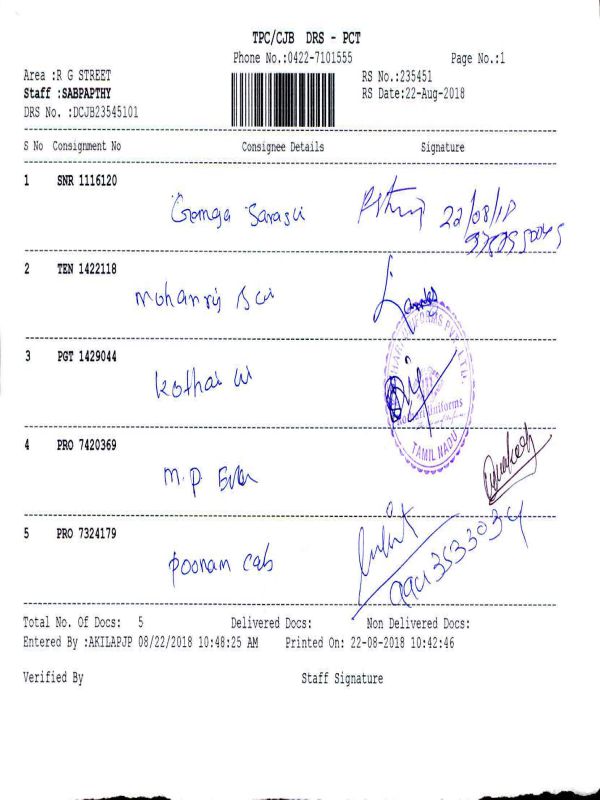 TPC/CJB DRS - PCT
Phone No.:0422-7101555 Page No.:1
Area :R G STREET RS No.:235451
Staff :SABPAPTHY RS Date:22-Aug-2018
DRS No. :DCJB23545101
S No Consignment No Consignee Details Signature
1 SNR 1116120
Ganga Saraswi 22/08/18
2 TEN 1422118
3 PGT 1429044
Kothari
Uniforms
TAMIL NADU
4 PRO 7420369
M.P.
5 PRO 7324179
Poonam Cab
Total No. Of Docs: 5 Delivered Docs: Non Delivered Docs:
Entered By :AKILAPJP 08/22/2018 10:48:25 AM Printed On: 22-08-2018 10:42:46
Verified By Staff Signature